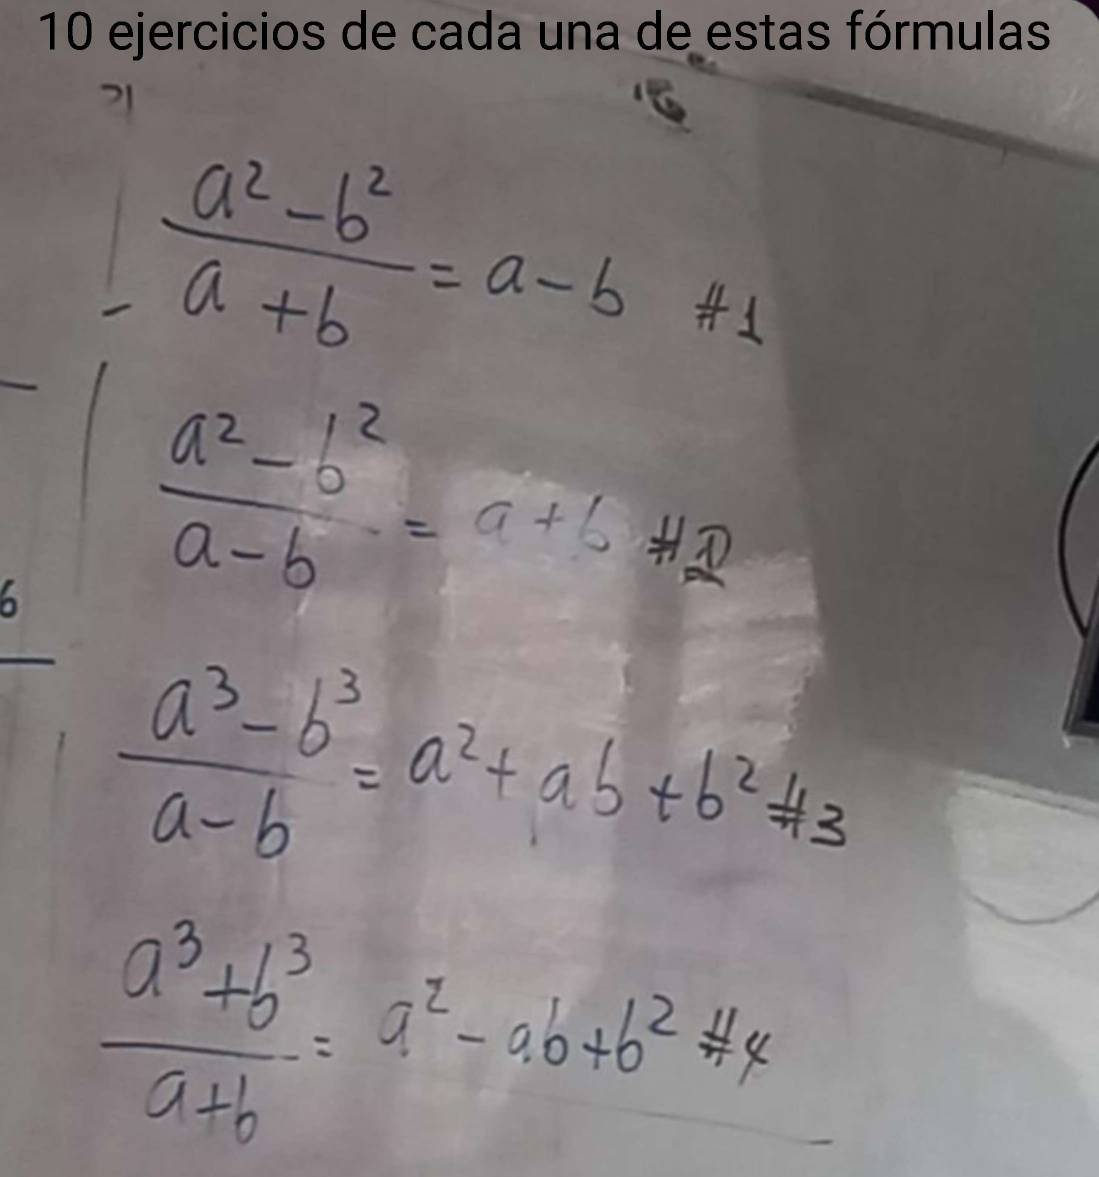 10 ejercicios de cada una de estas fórmulas
a² - b² / a + b = a - b #1
a² - b² / a - b = a + b #2
6
a³ - b³ / a - b = a² + ab + b² #3
a³ + b³ / a + b = a² - ab + b² #4